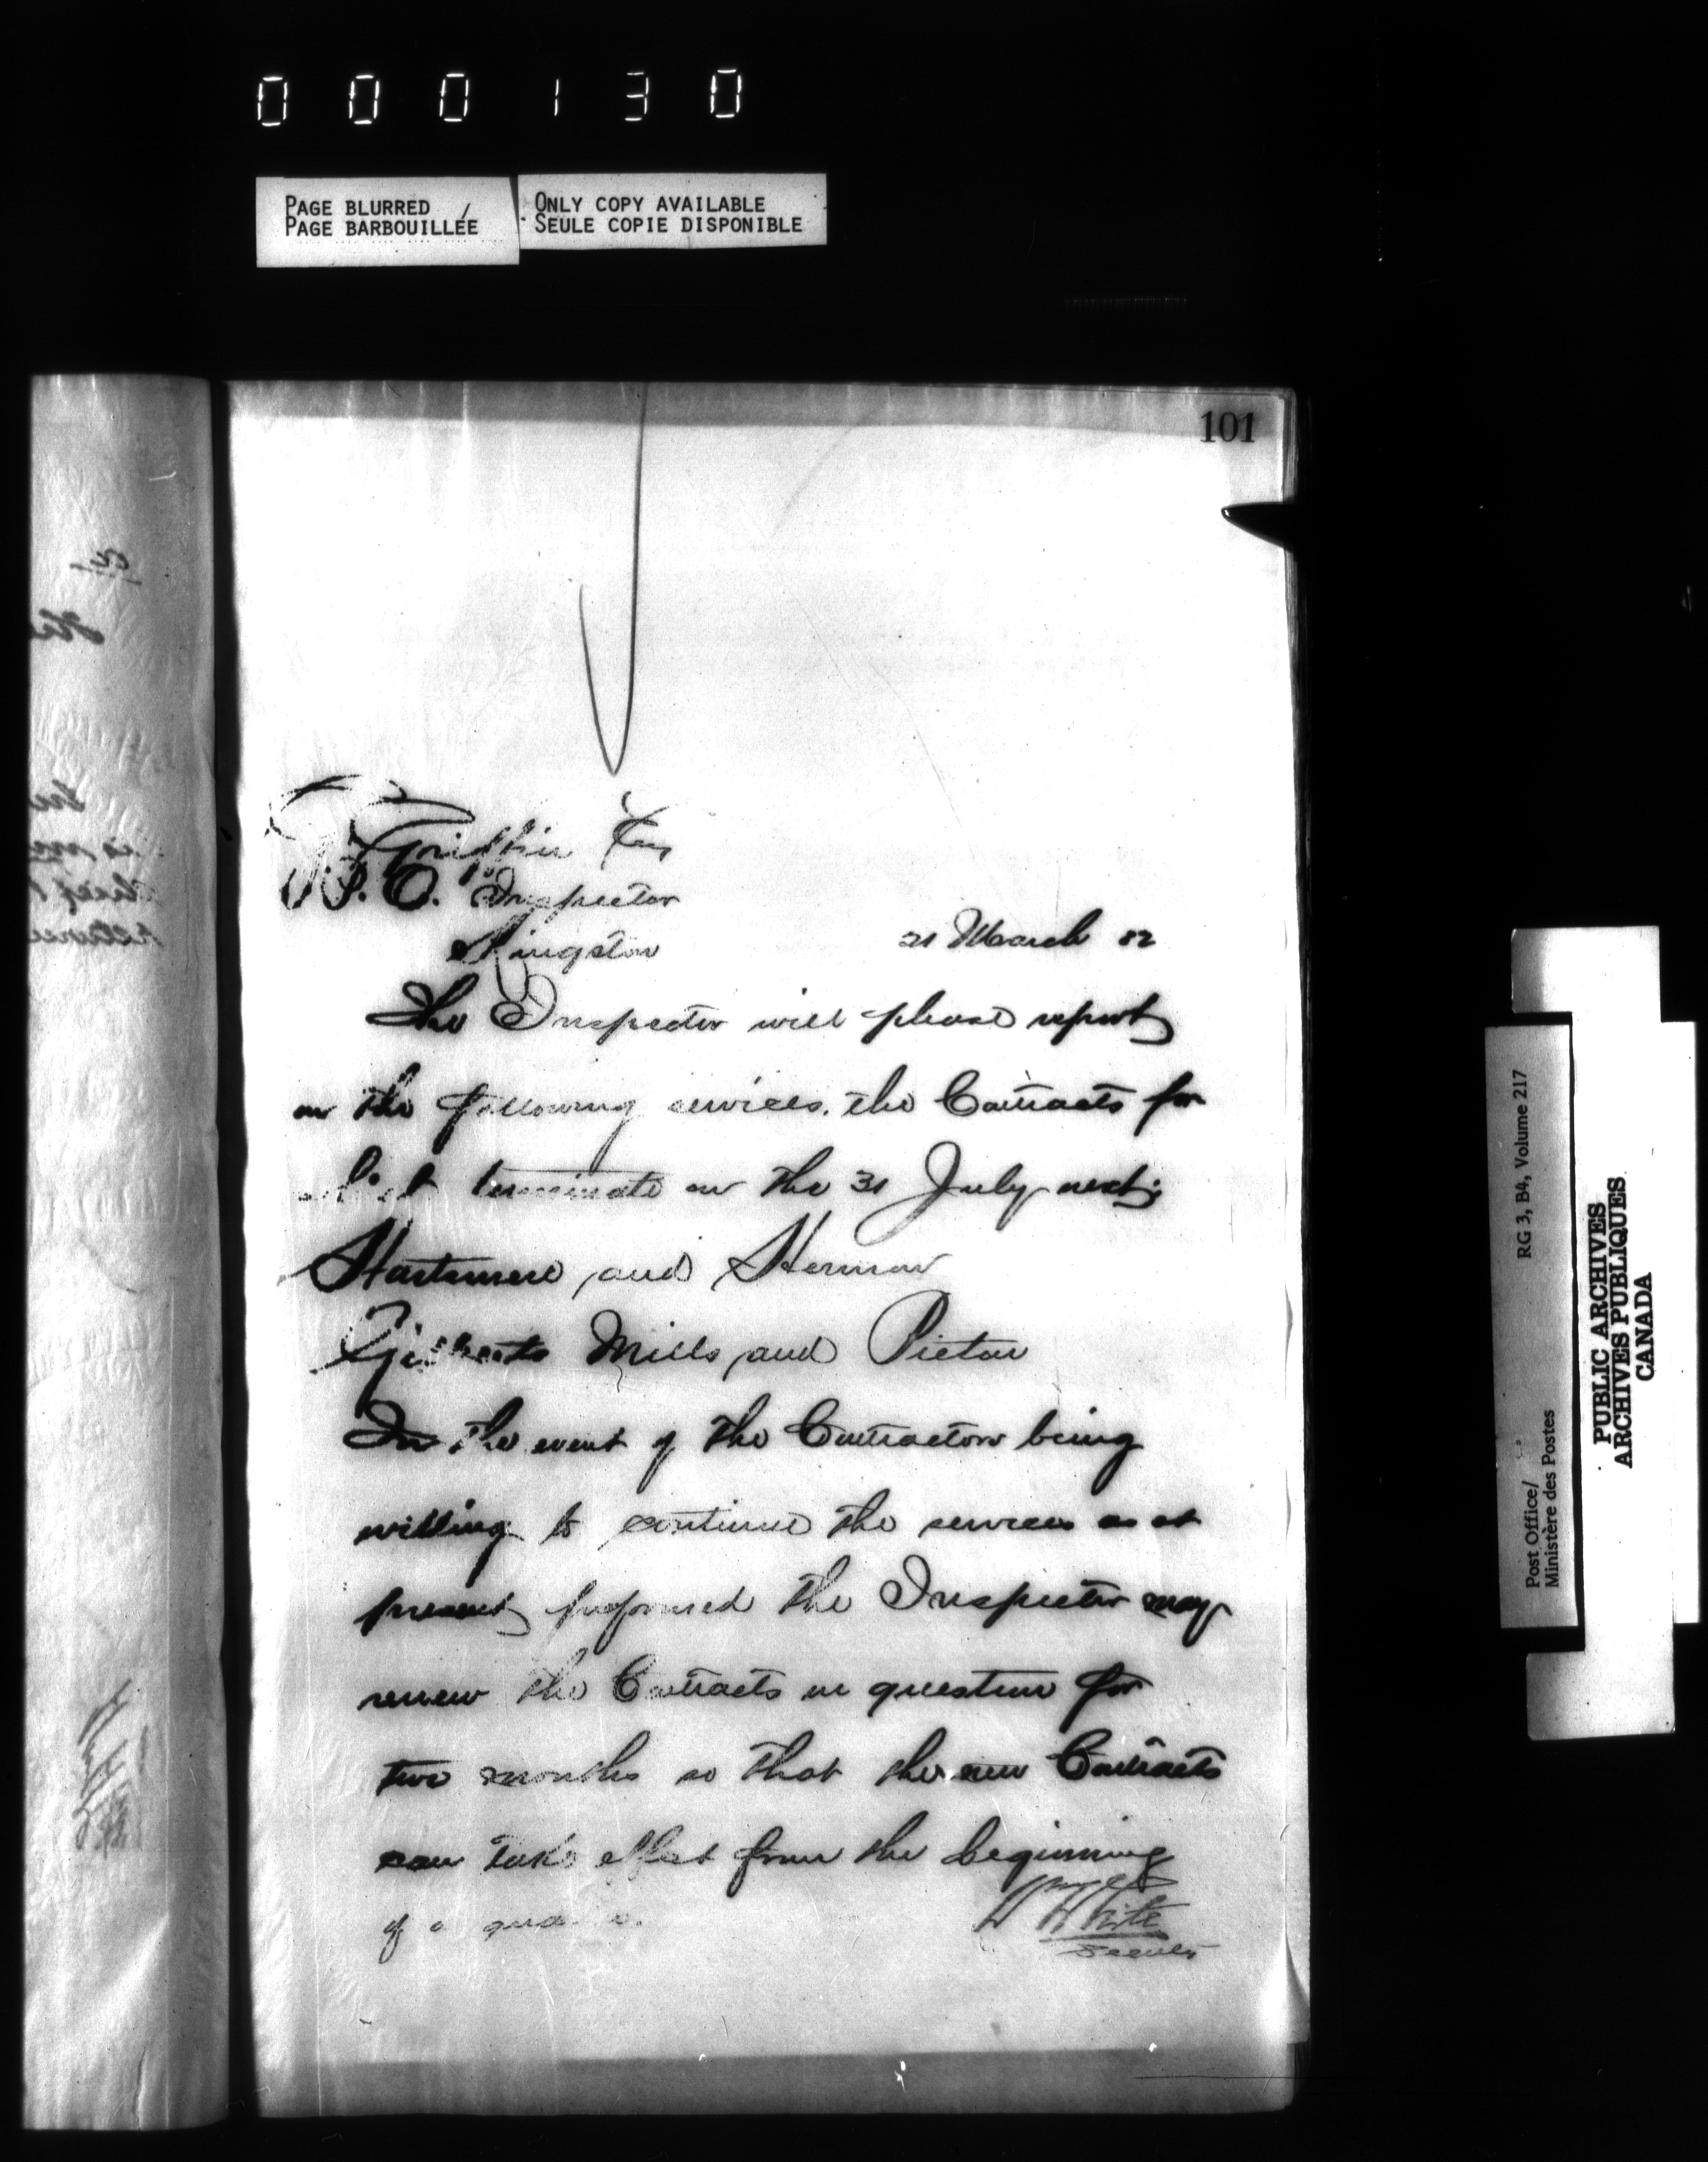 000130
PAGE BLURRED / ONLY COPY AVAILABLE
PAGE BARBOUILLÉE SEULE COPIE DISPONIBLE
101
Griffin Esq
P.O. Inspector
Kingston 21 March 82
The Inspector will please report
on the following services, the Contracts for
which terminate on the 31 July next;
Hartsmere and Hermon
Gilberts Mills and Picton
In the event of the Contractors being
willing to continue the services as at
present performed the Inspector may
renew the Contracts in question for
two months so that the new Contracts
can take effect from the beginning
of a quarter.
W White
Secretary
RG 3, B4, Volume 217
Post Office/
Ministère des Postes
PUBLIC ARCHIVES
ARCHIVES PUBLIQUES
CANADA